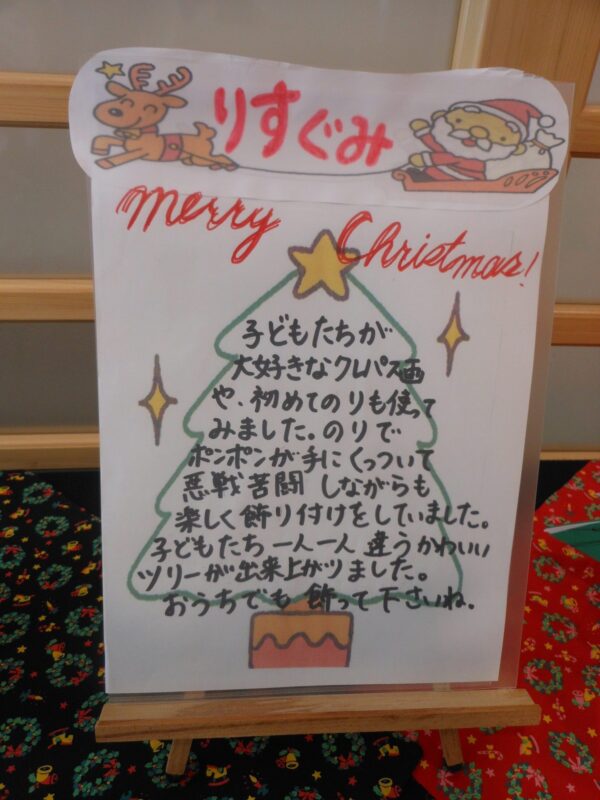 りすぐみ
merry Christmas!
子どもたちが
大好きなクレパス画
や、初めてのりも使って
みました。のりで
ポンポンが手にくっついて
悪戦苦闘しながらも
楽しく飾り付けをしていました。
子どもたち一人一人違うかわいい
ツリーが出来上がりました。
おうちでも飾って下さいね。